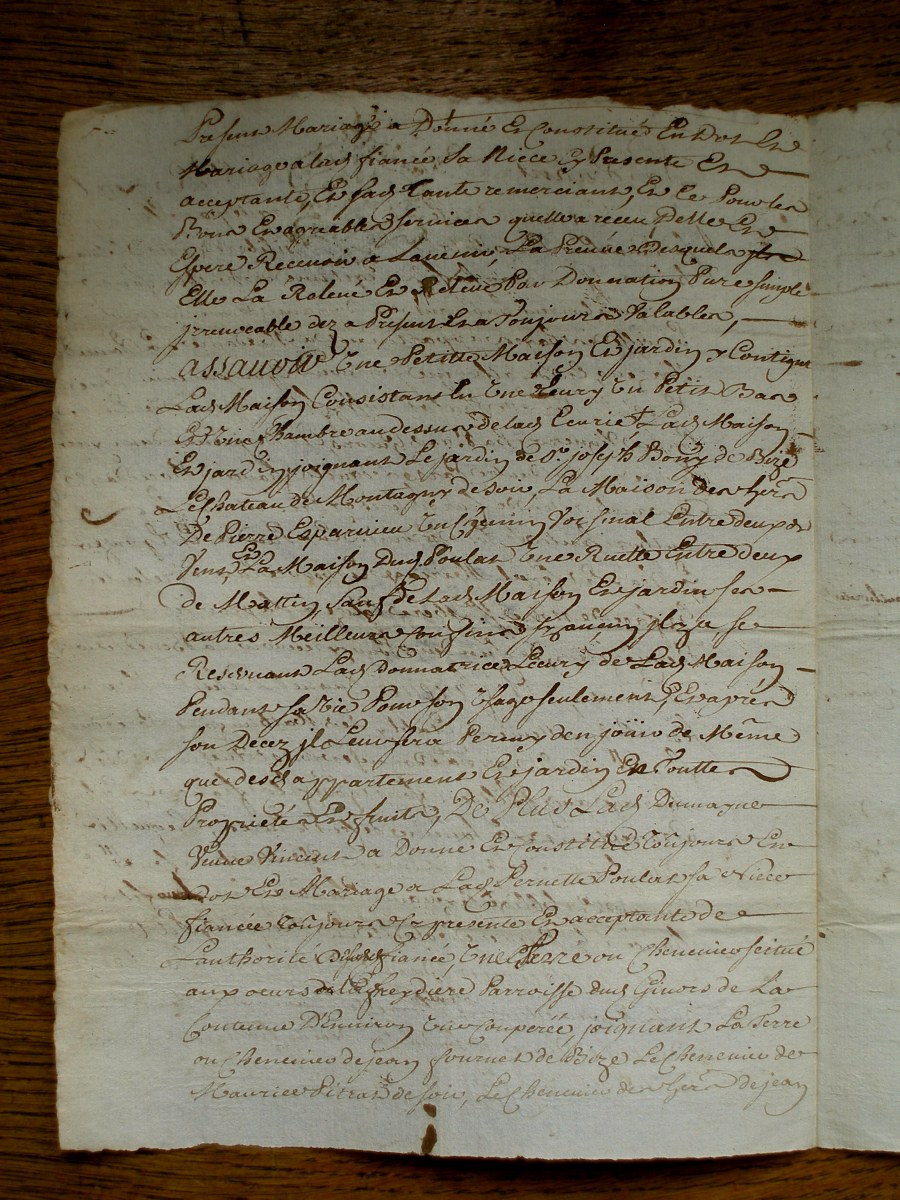 Present Mariage a Donné Et Constitué En Dot Et
Mariage a lad fiancée Sa Niece Cy Presente Et
acceptante, Et sad Tante remerciant, Et Ce Pour les
Bons Et agreables services quelle a receu Delle Et
Espere Recevoir a Lavenir, La Preuve Desquels
Elle La Relevé Et Releve Par Donnation Pure simple
jrrevocable dez a Present Et a Toujours Valables,
assavoir Une Petitte Maison Et jardin y Contigue
Lad Maison Consistant En Une Ecury Un Petit Bas
Et Une Chambre au dessus de lad Ecurie Lad Maison
Et jardin joignant Le jardin de Sr joseph Bony de Bize
Le Chateau de Montagny de soir, La Maison des hers
De Pierre Esparvieu Un Chemin Voisinal Entre deux de
Vent, Et La Maison Dud Poulat Une Ruette Entre deux
de Mattin, Sauf de Lad Maison Et jardin ses
autres Meilleurs Confins jl ya se
Reservant Lad Donnatrice Lecury de Lad Maison
Pendant sa Vie Pour son Usage seulement, Et aprés
son Decez jl Leur sera Permy den joüir de Même
que desd appartement Et jardin En Toutte
Proprieté Et fruits, De Plus Lad Dumagne
Veuve Vincent a Donne Et Constitué Toujours En
Dot Et Mariage a Lad Pernette Poulat sa Niece
fiancée Toujours Cy presente Et acceptante de
Lauthorité dud fiancé, Une Terre ou Chenevier scitué
aux de la freydiere Parroisse dud Givors de La
Contenue D'Environ Une Couperée, joignant La Terre
ou Chenevier de jean fournet de Bize Le Chenevier de
Maurice Pitrat de soir, Le Chenevier des hers de jean